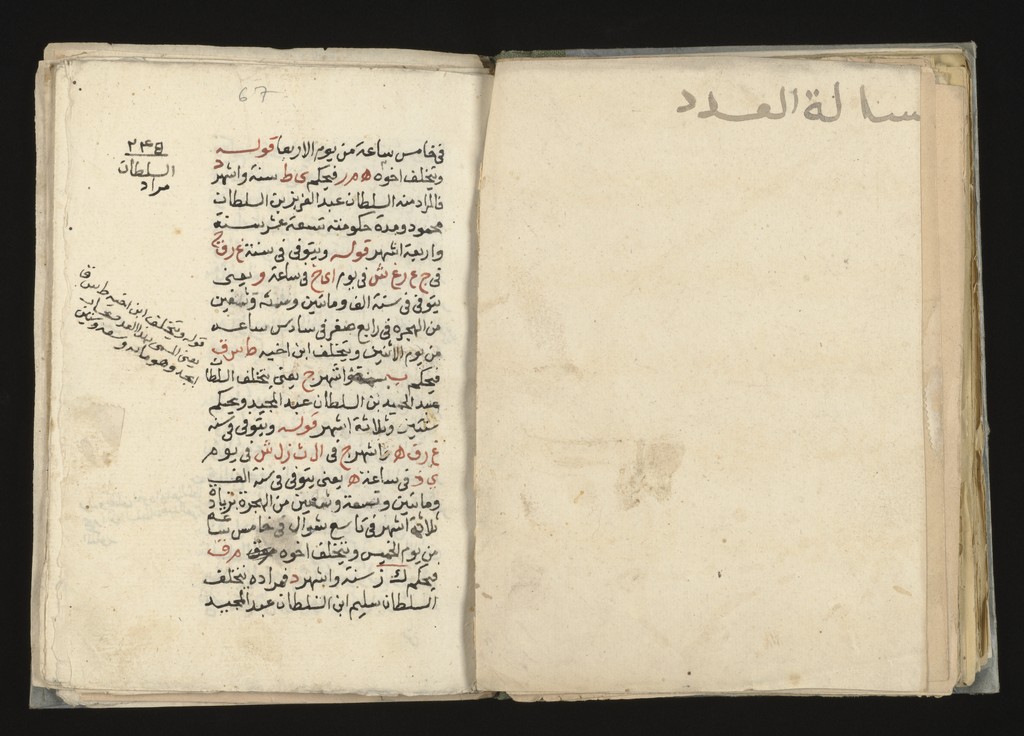 سالة العدد
67
في خامس ساعة من يوم الاربعا قوله
ويتخلف اخوه ه م رر فيحكم ى ط سنة واشهر د
فالمراد منه السلطان عبد العزيز بن السلطان
محمود ومدة حكومته تسعة عشر سنة
واربعة اشهر قوله ويتوفى في سنة غ ر ق ج
في ج ع ر غ ش في يوم اى خ في ساعة و يعني
يتوفى في سنة الف ومائتين وستة وتسعين
من الهجرة في رابع صفر في سادس ساعه
من يوم الاثنين ويتخلف ابن اخيه ط س ق
فيحكم ب واشهر ج يعني يتخلف السلطان
عبد الحميد بن السلطان عبد المجيد ويحكم
سنتين وثلاثة اشهر قوله ويتوفى في سنه
غ ر ق ه واشهر ج في ال ث ز ل ش في يوم
ى ذ في ساعة ه يعني يتوفى في سنة الف
ومائتين وتسعة وتسعين من الهجرة بزيادة
ثلاثة اشهر في تاسع شوال في خامس ساعة
من يوم الخميس ويتخلف اخوه م ر ق
فيحكم ك ز سنة واشهر د فمراده يتخلف
السلطان سليم ابن السلطان عبد المجيد
السلطان
مراد
قوله ويتخلف ابن اخيه ط س ق
يعني المسمى بهذا العدد
ابجد وهو مائه وتسعه وستين